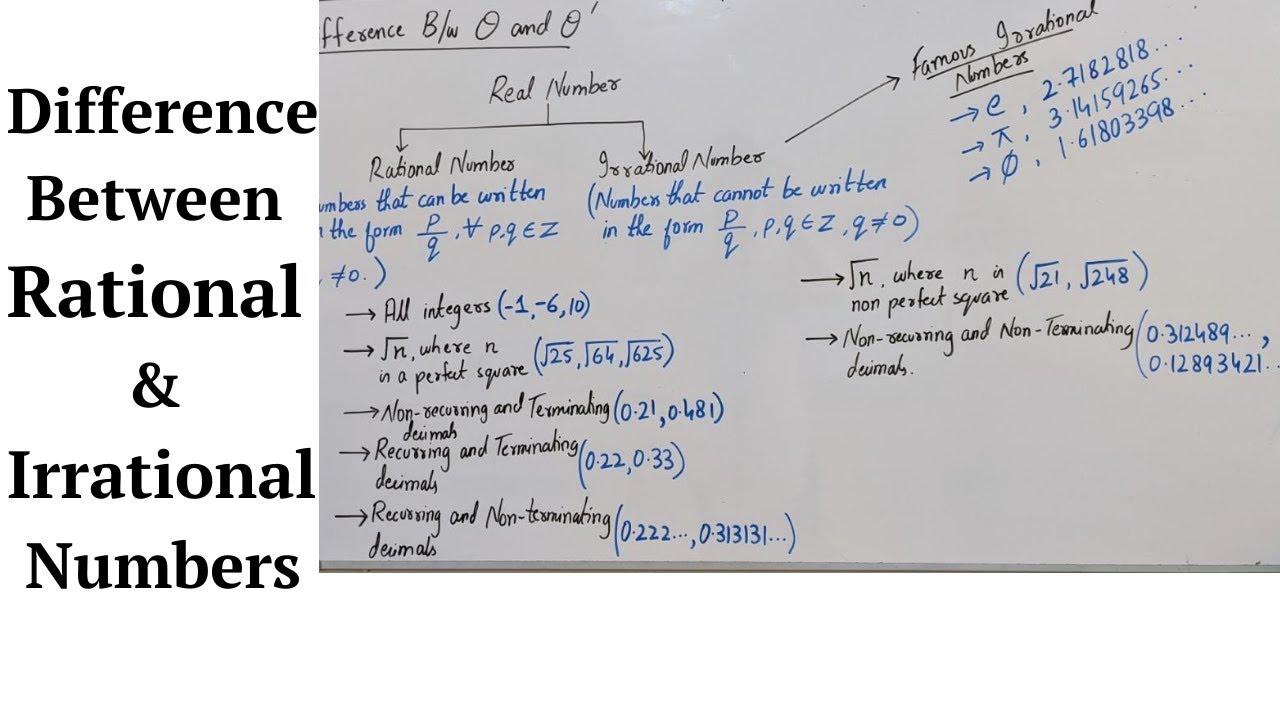 Difference
Between
Rational
&
Irrational
Numbers
fference B/w Q and Q'
Real Number
Rational Number
umbers that can be written
n the form p/q, ∀ p,q ∈ Z
, ≠0.)
→ All integers (-1,-6,10)
→ √n, where n
is a perfect square (√25, √64, √625)
→ Non-recurring and Terminating (0.21, 0.481)
decimals
→ Recurring and Terminating (0.22, 0.33)
decimals
→ Recurring and Non-terminating (0.222..., 0.313131...)
decimals
Irrational Number
(Numbers that cannot be written
in the form p/q, p,q ∈ Z, q ≠ 0)
→ √n, where n is (√21, √248)
non perfect square
→ Non-recurring and Non-Terminating (0.312489...,
decimals. 0.12893421..
Famous Irrational
Numbers
→ e, 2.7182818...
→ π, 3.14159265...
→ Ø, 1.61803398...